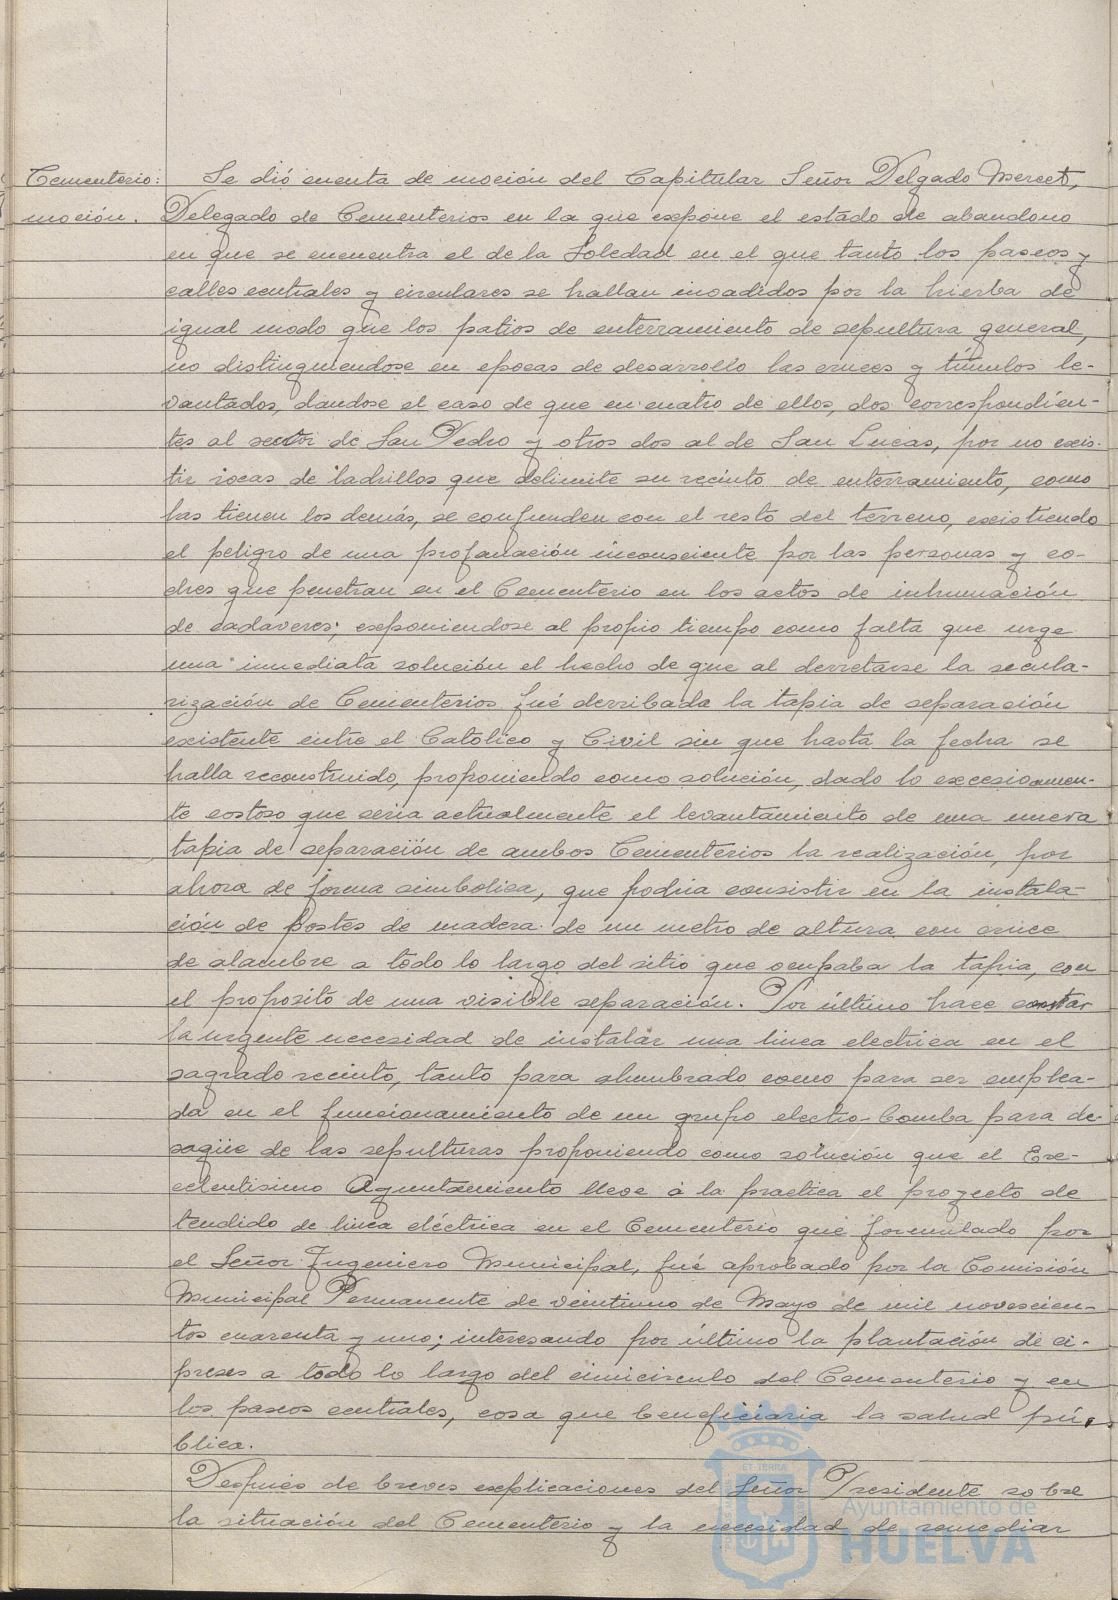 Cementerio:
moción.
Se dió cuenta de moción del Capitular Señor Delgado Mercet,
Delegado de Cementerios en la que expone el estado de abandono
en que se encuentra el de la Soledad en el que tanto los paseos y
calles centrales y circulares se hallan invadidos por la hierba de
igual modo que los patios de enterramiento de sepultura general,
no distinguiendose en epocas de desarrollo las cruces y túmulos le-
vantados, dandose el caso de que en cuatro de ellos, dos correspondien-
tes al sector de San Pedro y otros dos al de San Lucas, por no exis-
tir rocas de ladrillos que delimite su recinto de enterramiento, como
las tienen los demás, se confunden con el resto del terreno, existiendo
el peligro de una profanación inconsciente por las personas y co-
ches que penetran en el Cementerio en los actos de inhumación
de cadaveres; exponiendose al propio tiempo como falta que urge
una inmediata solución el hecho de que al decretarse la secula-
rización de Cementerios fué derribada la tapia de separación
existente entre el Católico y Civil sin que hasta la fecha se
halla reconstruido, proponiendo como solución, dado lo excesivamen-
te costoso que seria actualmente el levantamiento de una nueva
tapia de separación de ambos Cementerios la realización, por
ahora de forma simbolica, que podria consistir en la instala-
ción de postes de madera de un metro de altura con cruce
de alambre a todo lo largo del sitio que ocupaba la tapia, con
el proposito de una visible separación. Por último hace constar
la urgente necesidad de instalar una linea electrica en el
sagrado recinto, tanto para alumbrado como para ser emplea-
da en el funcionamiento de un grupo electro-bomba para de-
sagüe de las sepulturas proponiendo como solución que el Exc-
celentisimo Ayuntamiento lleve à la practica el proyecto de
tendido de linea eléctrica en el Cementerio que formulado por
el Señor Ingeniero Municipal, fué aprobado por la Comisión
Municipal Permanente de veintiuno de Mayo de mil novescien-
tos cuarenta y uno; interesando por último la plantación de ci-
preses a todo lo largo del cimicirculo del Cementerio y en
los paseos centrales, cosa que beneficiaria la salud pú-
blica.
Después de breves explicaciones del Señor Presidente sobre
la situación del Cementerio y la necesidad de remediar
Ayuntamiento de
HUELVA